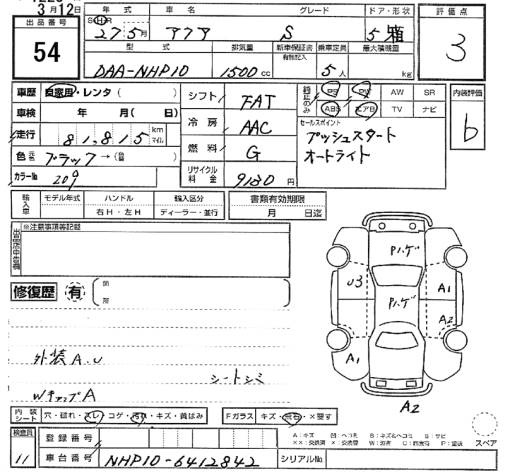 3月12日
出品番号
54
年式 車名 グレード ドア・形状
27年5月 アクア S 5 箱
型式 排気量 新車保証書 乗車定員 最大積載量
有無記入
DAA-NHP10 1500cc 5人 kg
評価点
3
車歴 自家用・レンタ( )
車検 年 月( 日)
走行 81,815 km マイル
色 元色 ブラック→(
カラーNo 209
シフト FAT
冷房 AAC
燃料 G
リサイクル料金 9180円
純正のみ PS PW AW SR
ABS エアB TV ナビ
セールスポイント
プッシュスタート
オートライト
内装評価
b
輸入車 モデル年式 ハンドル 輸入区分
年 右H・左H ディーラー・並行
書類有効期限
月 日迄
出品店申告欄
※注意事項等記載
修復歴 有
Pハゲ
U3 Pハゲ A1
A2
A1
A2
外装A.U
シートシミ
WキャップA
内装シート 穴・破れ・スレ・コゲ・汚れ・キズ・黄ばみ
Fガラス キズ・飛石・×要す
検査員
11
登録番号
車台番号 NHP10-6412842 シリアルNo.
スペア